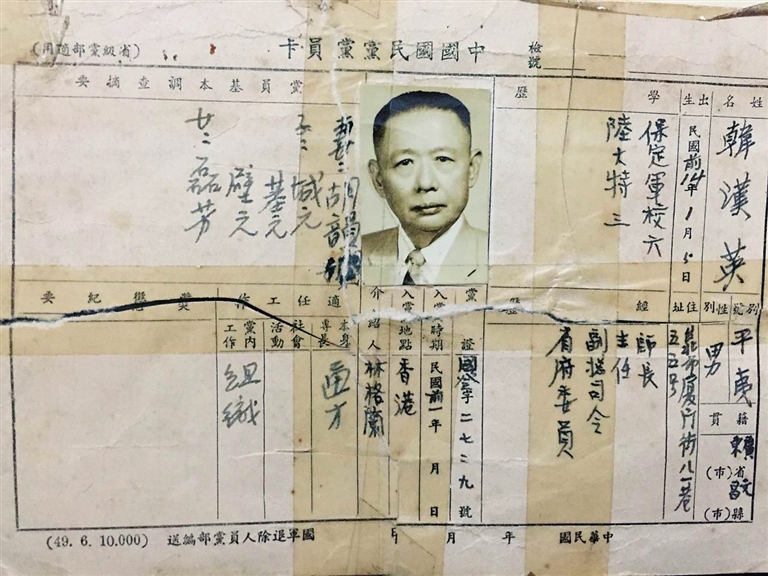 中國國民黨黨員卡
(省級黨部適用)
檢號
姓名
韓漢英
出生
民國前14年1月5日
學歷
保定軍校六
陸大特三
黨員基本調查摘要
妻:胡韻
子:城元
基元
壁元
女:磊芳
別號
平夷
性別
男
籍貫
廣東省(市)
文昌縣(市)
住址
臺北市廈門街八一巷
五五號
經歷
師長
主任
副總司令
省府委員
黨證
國字二七二九號
入黨時期
民國前一年 月 日
入黨地點
香港
介紹人
林格蘭
適任工作
本身專長
社會活動
黨內工作
組織
獎懲紀要
中華民國 年 月 日
國軍退除人員黨部編送
(49. 6. 10.000)